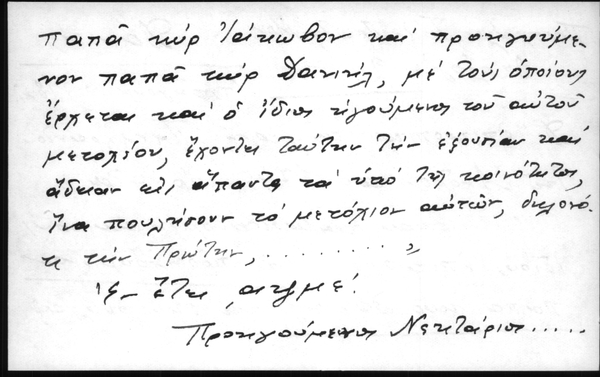 παπᾶ κύρ Ἰάκωβον καί προηγούμε-
νον παπᾶ κύρ Δανιήλ, μέ τούς ὁποίους
ἔρχεται καί ὁ ἴδιος ἡγούμενος τοῦ αὐτοῦ
μετοχίου, ἔχοντες ταύτην τήν ἐξουσίαν καί
ἄδειαν εἰς ἅπαντα τά ὑπό τῆς κοινότητος,
ἵνα πουλήσουν τό μετόχιον αὐτῶν, δηλονό-
τι τήν Πρώτην, . . . . . . . . . »
Ἐν ἔτει ͵αψμε΄.
Προηγούμενος Νεκτάριος . . . . .